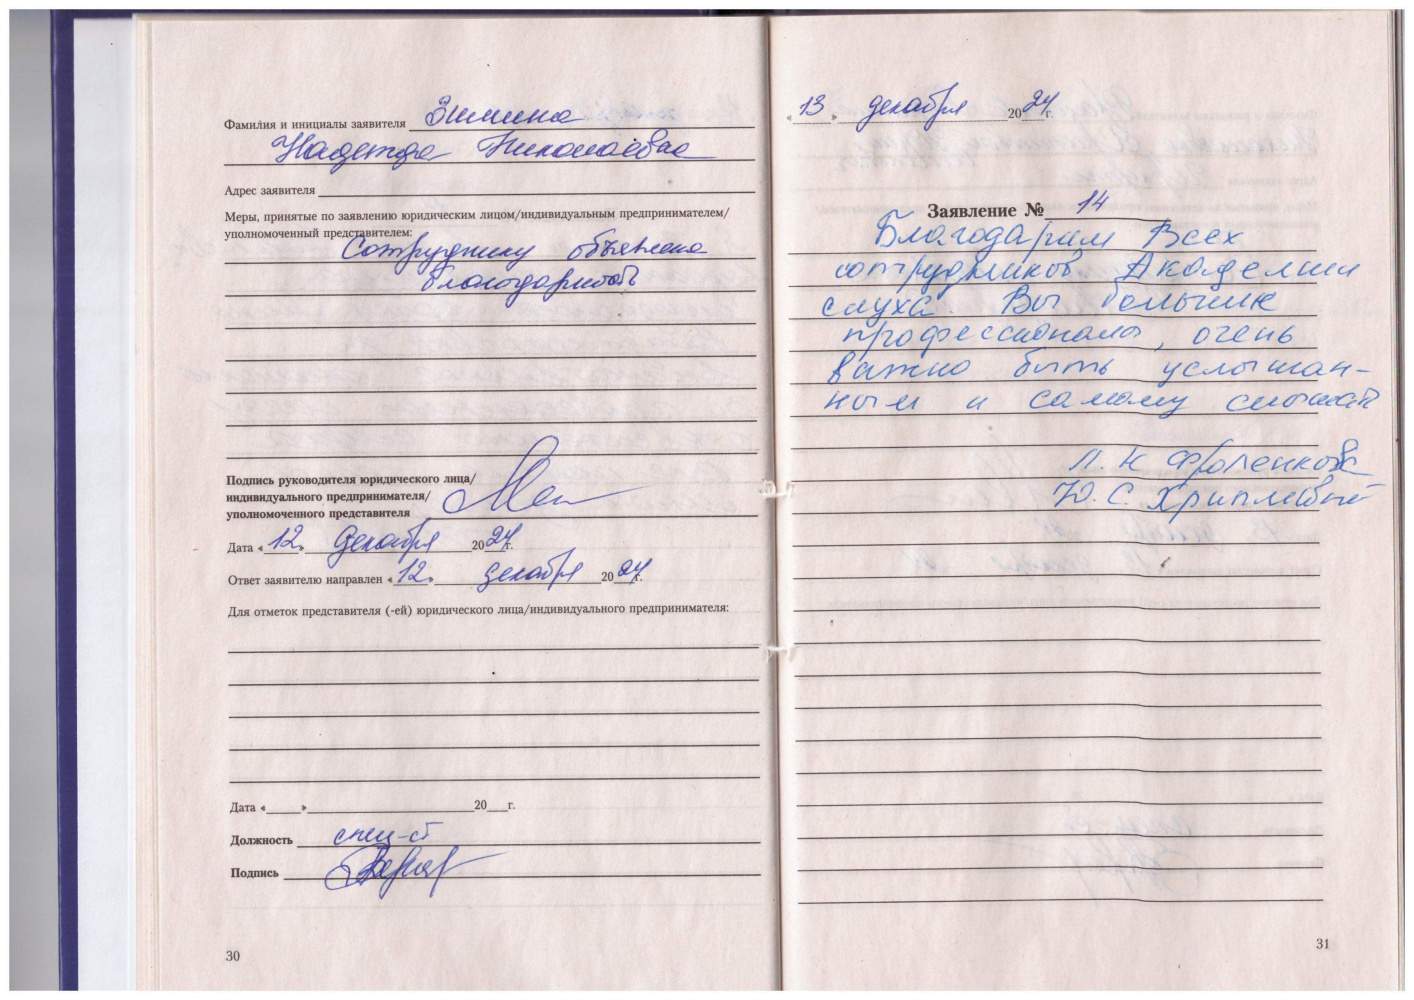 Фамилия и инициалы заявителя Зимина
Надежда Николаевна
Адрес заявителя
Меры, принятые по заявлению юридическим лицом/индивидуальным предпринимателем/
уполномоченный представителем:
Сотруднику объявлена
благодарность
Подпись руководителя юридического лица/
индивидуального предпринимателя/
уполномоченного представителя
Дата «12» декабря 2024г.
Ответ заявителю направлен «12» декабря 2024г.
Для отметок представителя (-ей) юридического лица/индивидуального предпринимателя:
Дата «____» ____ 20__г.
Должность спец-ст
Подпись
30
«13» декабря 2024г.
Заявление № 14
Благодарим Всех
сотрудников Академии
слуха. Вы большие
профессионалы, очень
важно быть услышан-
ным и самому слышать
Л. Н Фроленкова
Ю. С. Хриплевый
31